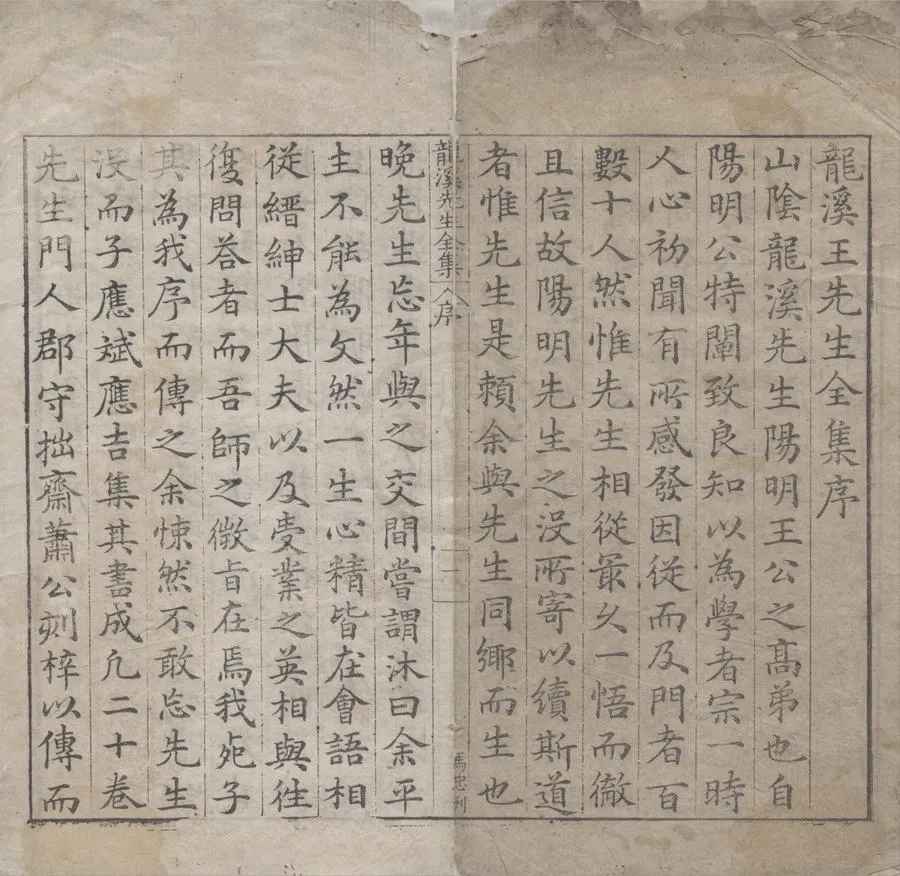 龍溪王先生全集序
山陰龍溪先生陽明王公之髙弟也自
陽明公特闡致良知以為學者宗一時
人心初聞有所感發因從而及門者百
數十人然惟先生相從最久一悟而徹
且信故陽明先生之沒所寄以續斯道
者惟先生是賴余與先生同鄉而生也
龍溪先生全集 序 一
馮忠刊
晚先生忘年與之交間嘗謂沐曰余平
生不能為文然一生心精皆在會語相
從縉紳士大夫以及受業之英相與往
復問答者而吾師之微旨在焉我死子
其為我序而傳之余悚然不敢忘先生
沒而子應斌應吉集其書成凡二十卷
先生門人郡守拙齋蕭公刻梓以傳而